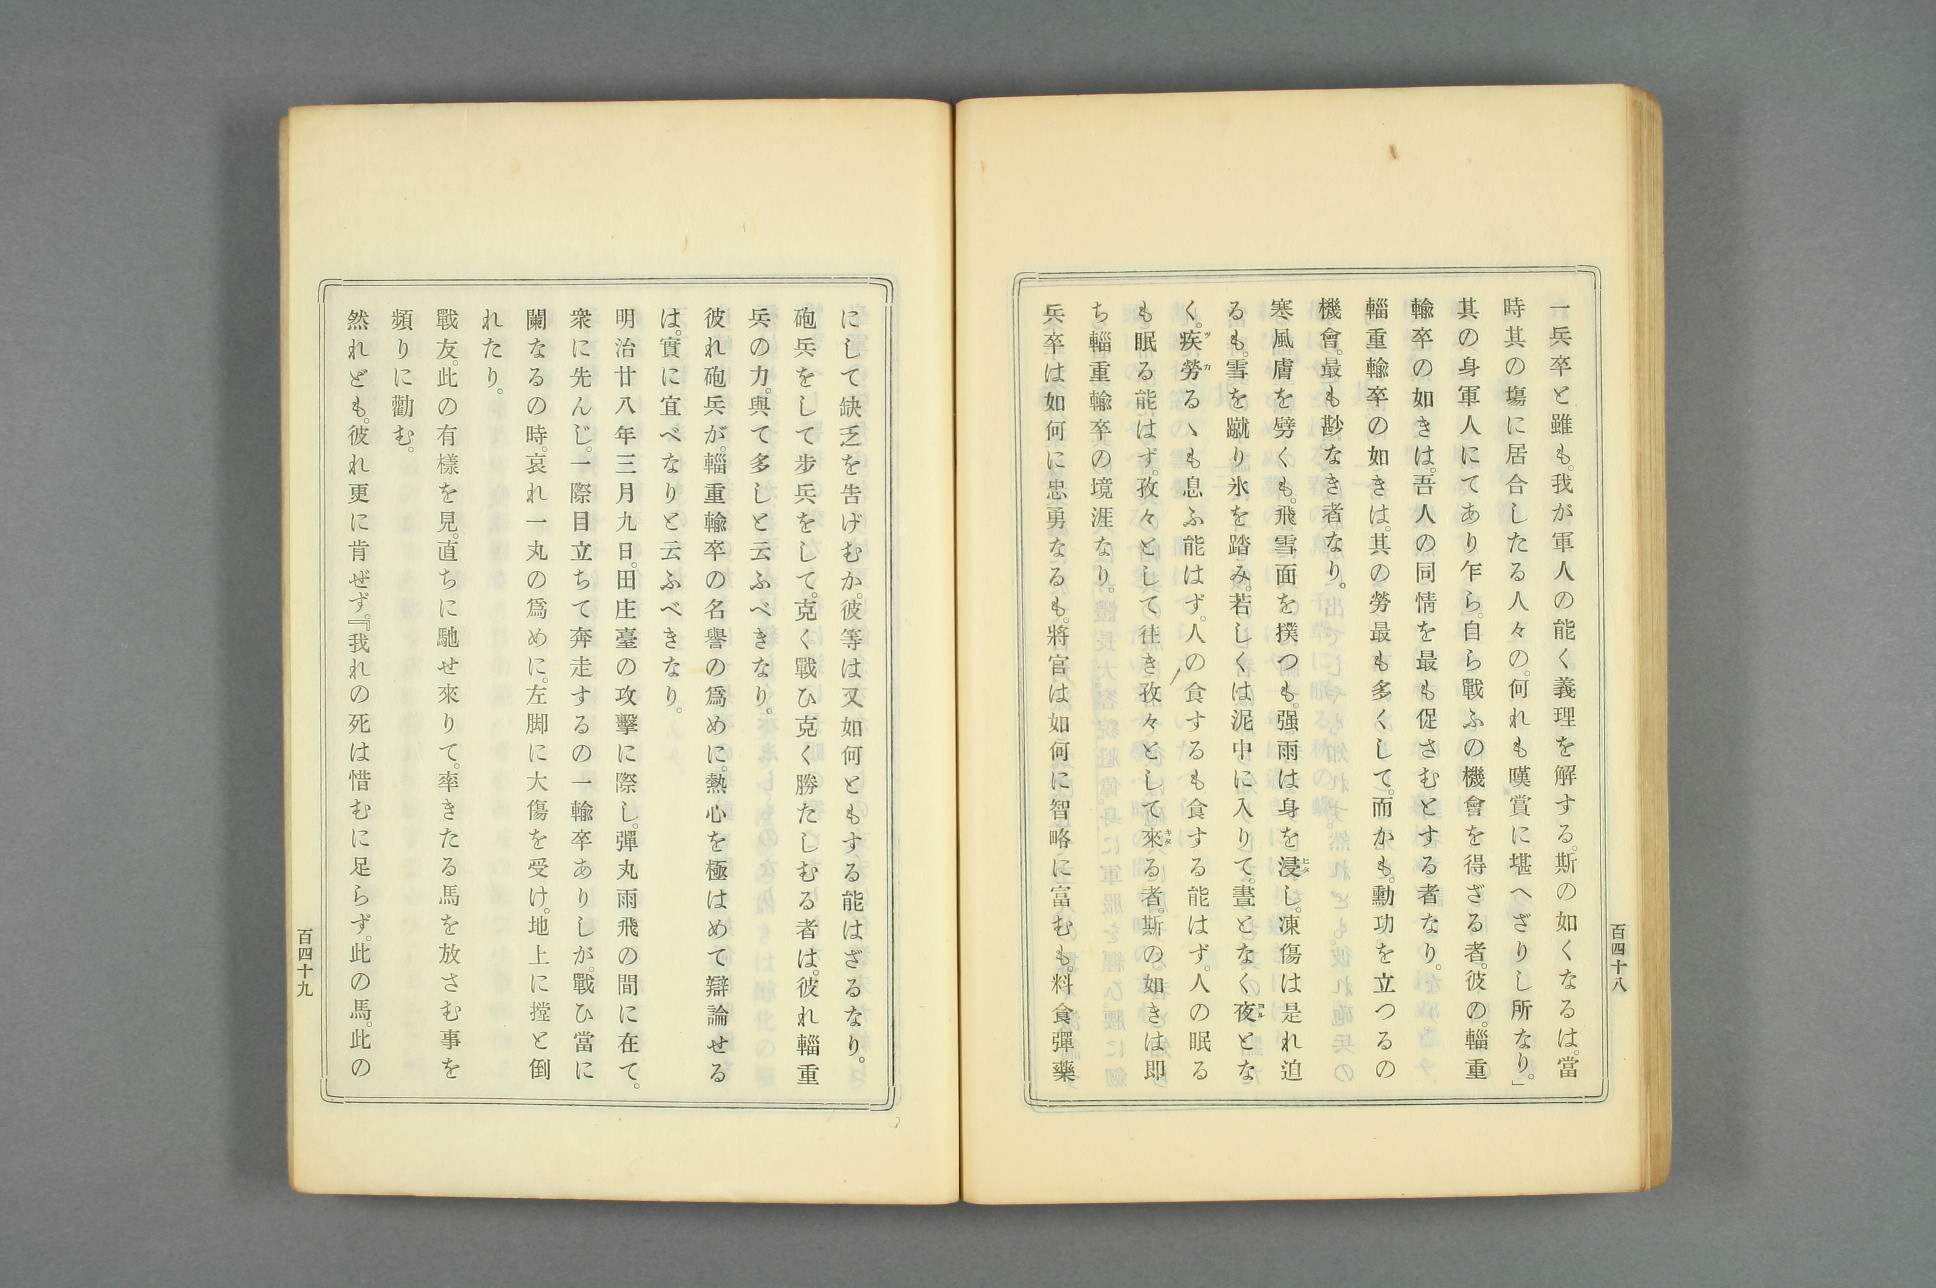 一兵卒と雖も。我が軍人の能く義理を解する。斯の如くなるは。當
時其の塲に居合したる人々の。何れも嘆賞に堪へざりし所なり。」
其の身軍人にてあり乍ら。自ら戰ふの機會を得ざる者。彼の。輜重
輸卒の如きは。吾人の同情を最も促さむとする者なり。
輜重輸卒の如きは。其の勞最も多くして。而かも。勳功を立つるの
機會。最も尠なき者なり。
寒風膚を劈くも。飛雪面を撲つも。强雨は身を浸し。凍傷は是れ迫
るも。雪を蹴り氷を踏み。若しくは泥中に入りて。晝となく夜とな
く。疾勞るゝも息ふ能はず。人の食するも食する能はず。人の眠る
も眠る能はず。孜々として往き孜々として來る者。斯の如きは即
ち輜重輸卒の境涯なり。
兵卒は如何に忠勇なるも。將官は如何に智略に富むも。料食彈藥
百四十八
にして缺乏を告げむか。彼等は又如何ともする能はざるなり。
砲兵をして步兵をして。克く戰ひ克く勝たしむる者は。彼れ輜重
兵の力。與て多しと云ふべきなり。
彼れ砲兵が。輜重輸卒の名譽の爲めに。熱心を極はめて辯論せる
は。實に宜べなりと云ふべきなり。
明治廿八年三月九日。田庄臺の攻擊に際し。彈丸雨飛の間に在て。
衆に先んじ。一際目立ちて奔走するの一輸卒ありしが。戰ひ當に
闌なるの時。哀れ一丸の爲めに。左脚に大傷を受け。地上に摚と倒
れたり。
戰友。此の有樣を見。直ちに馳せ來りて。率きたる馬を放さむ事を
頻りに勸む。
然れども。彼れ更に肯ぜず。『我れの死は惜むに足らず。此の馬。此の
百四十九